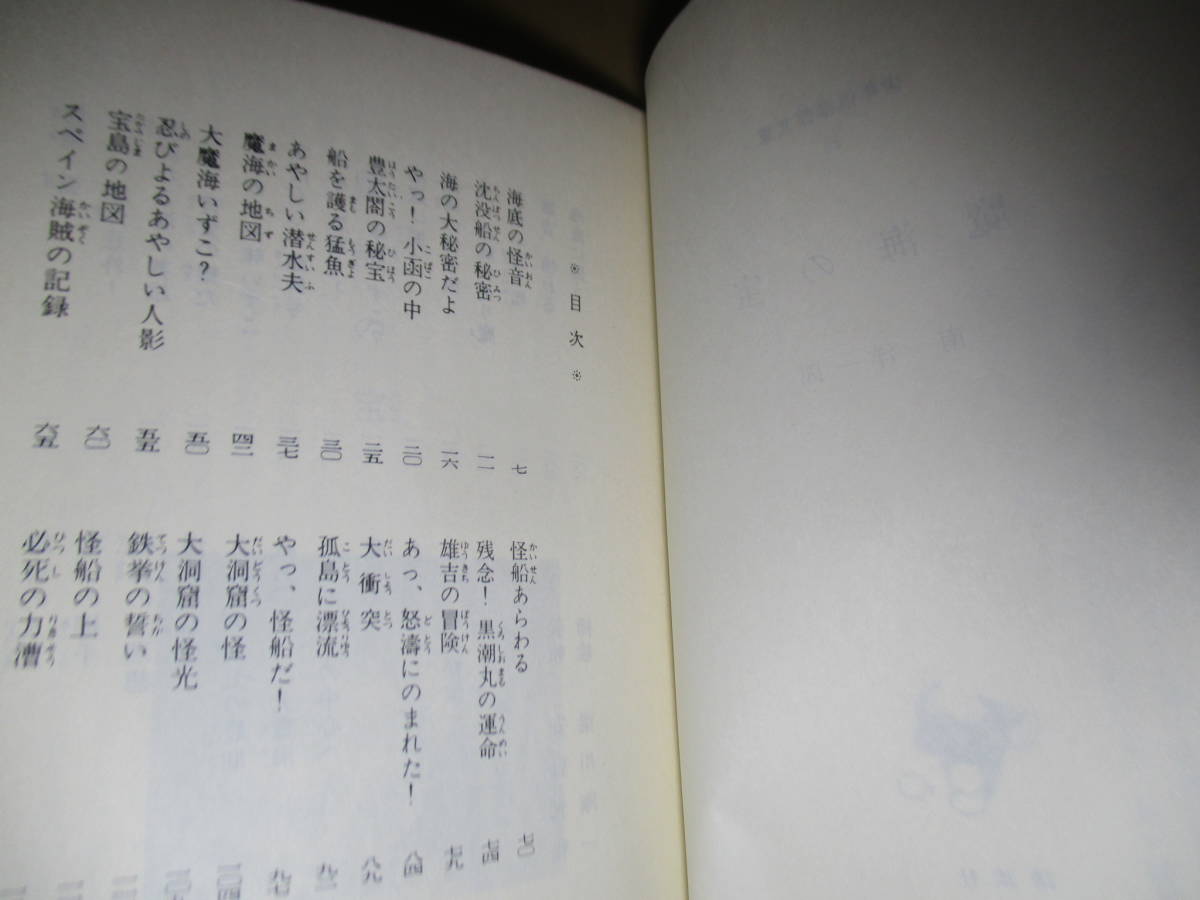 ※ 目次 ※
海底の怪音 七
沈没船の秘密 一一
海の大秘密だよ 一六
やっ！小函の中 二〇
豊太閤の秘宝 二五
船を護る猛魚 三〇
あやしい潜水夫 三七
魔海の地図 四二
大魔海いずこ？ 五〇
忍びよるあやしい人影 五五
宝島の地図 六〇
スペイン海賊の記録 六五
怪船あらわる 七〇
残念！黒潮丸の運命 七四
雄吉の冒険 七九
あっ、怒濤にのまれた！ 八四
大衝突 八九
孤島に漂流 九二
やっ、怪船だ！ 九七
大洞窟の怪 一〇四
大洞窟の怪光
鉄挙の誓い
怪船の上
必死の力漕